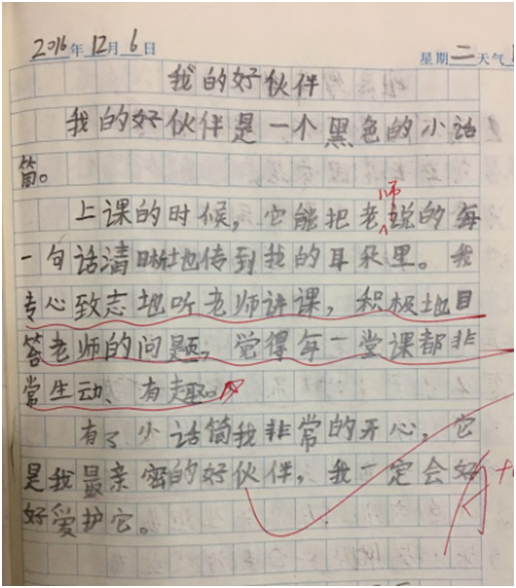 2016年12月6日 星期二天气
我的好伙伴
我的好伙伴是一个黑色的小话
筒。
上课的时候，它能把老师说的每
一句话清晰地传到我的耳朵里。我
专心致志地听老师讲课，积极地回
答老师的问题，觉得每一堂课都非
常生动、有趣。
有了小话筒我非常的开心，它
是我最亲密的好伙伴，我一定会好
好爱护它。